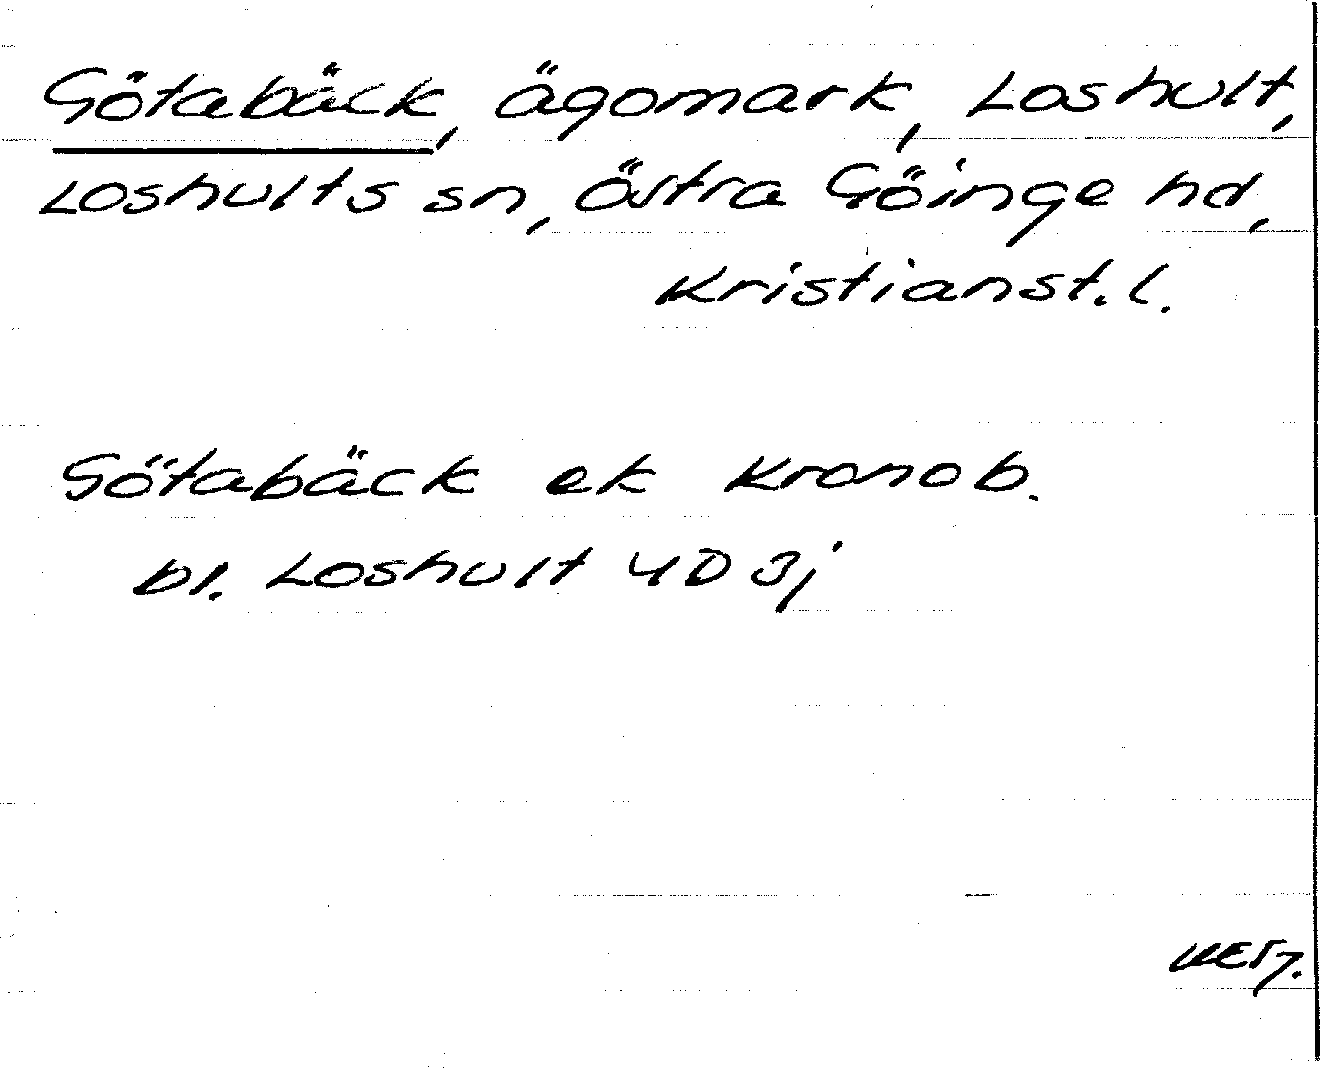 Götabäck, ägomark, Loshult,
Loshults sn, Östra Göinge hd,
Kristianst. l.
Götabäck ek Kronob.
bl. Loshult 4D 3j